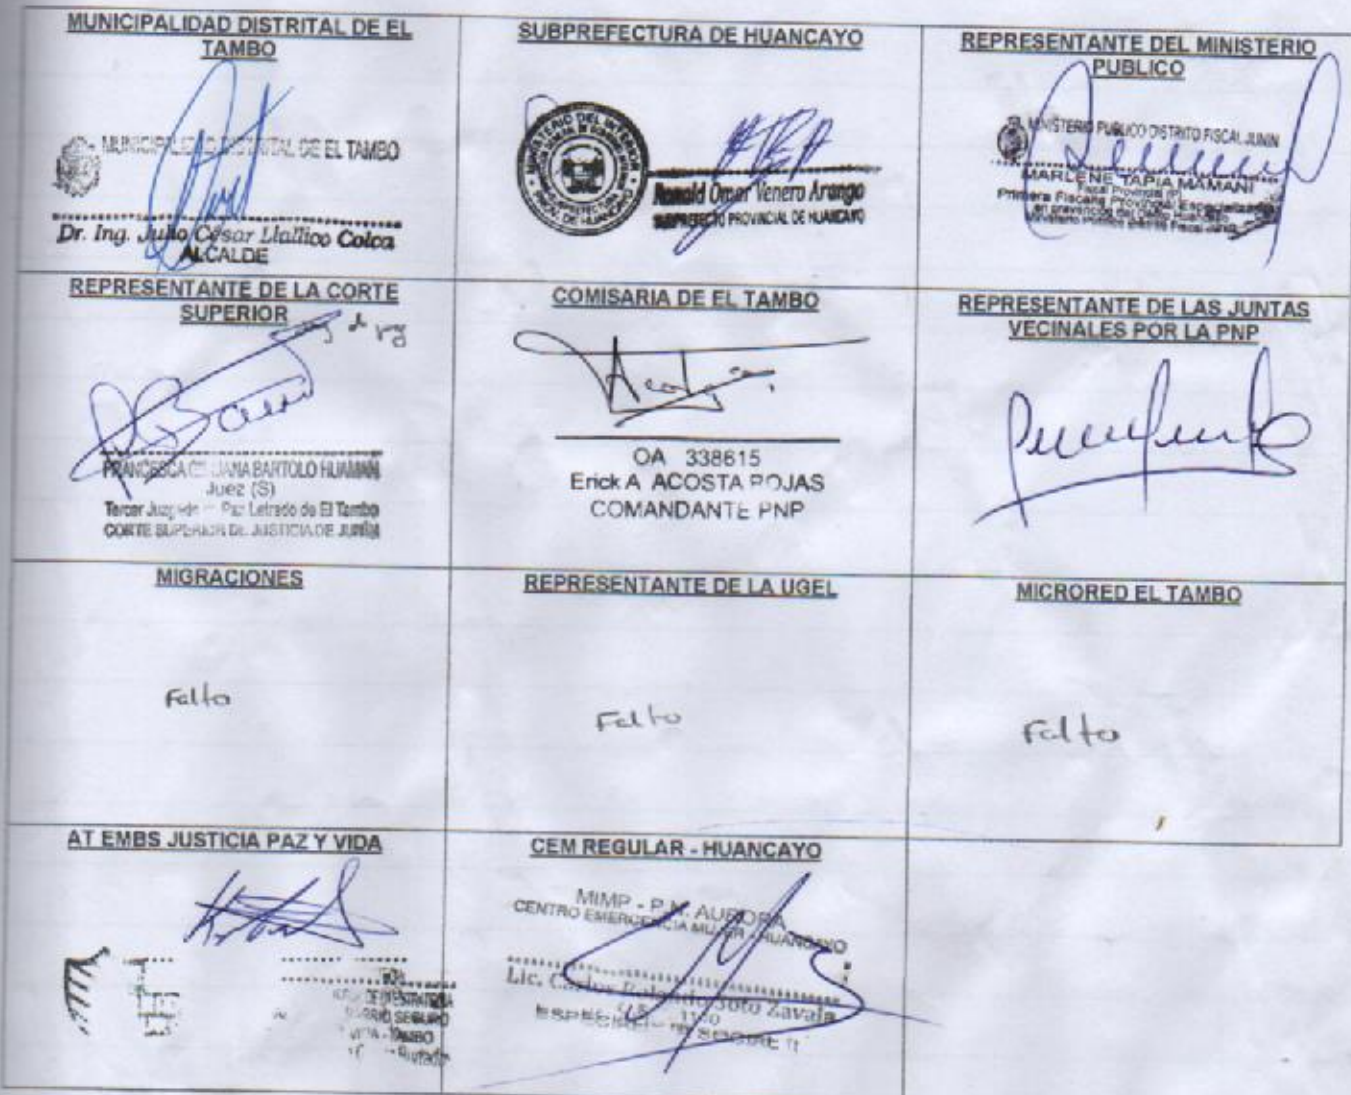 MUNICIPALIDAD DISTRITAL DE EL
TAMBO
MUNICIPALIDAD DISTRITAL DE EL TAMBO
Dr. Ing. Julio César Llallico Colca
ALCALDE
SUBPREFECTURA DE HUANCAYO
MINISTERIO DEL INTERIOR
Ronald Omar Venero Arango
SUBPREFECTO PROVINCIAL DE HUANCAYO
REPRESENTANTE DEL MINISTERIO
PUBLICO
MINISTERIO PUBLICO DISTRITO FISCAL JUNIN
MARLENE TAPIA MAMANI
Fiscal Provincial (P)
Primera Fiscalía Provincial Especializada
en prevención del Delito
REPRESENTANTE DE LA CORTE
SUPERIOR
BARTOLO HUAMAN
Juez (S)
Tercer Juzgado Paz Letrado de El Tambo
CORTE SUPERIOR DE JUSTICIA DE JUNÍN
COMISARIA DE EL TAMBO
OA 338615
Erick A ACOSTA ROJAS
COMANDANTE PNP
REPRESENTANTE DE LAS JUNTAS
VECINALES POR LA PNP
MIGRACIONES
Falto
REPRESENTANTE DE LA UGEL
Falto
MICRORED EL TAMBO
Falto
AT EMBS JUSTICIA PAZ Y VIDA
BARRIO SEGURO
CEM REGULAR - HUANCAYO
MIMP - P.N. AURORA
CENTRO EMERGENCIA MUJER - HUANCAYO
Lic. Carlos Rolando Soto Zavala